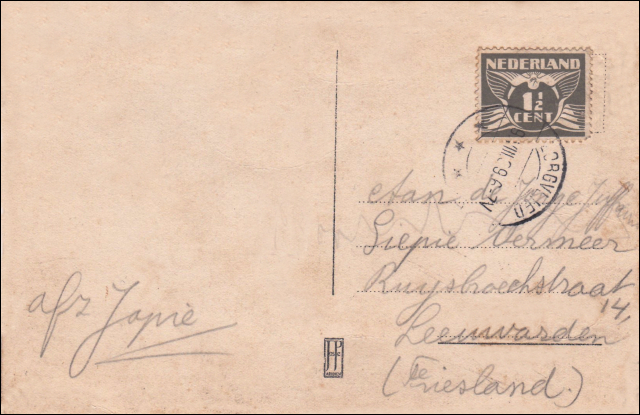 NEDERLAND
1 1/2
CENT
Aan de Jonge Juffrouw
Siepie Vermeer
Ruysbroeckstraat
14,
Leeuwarden
(Friesland.)
afz Jopie